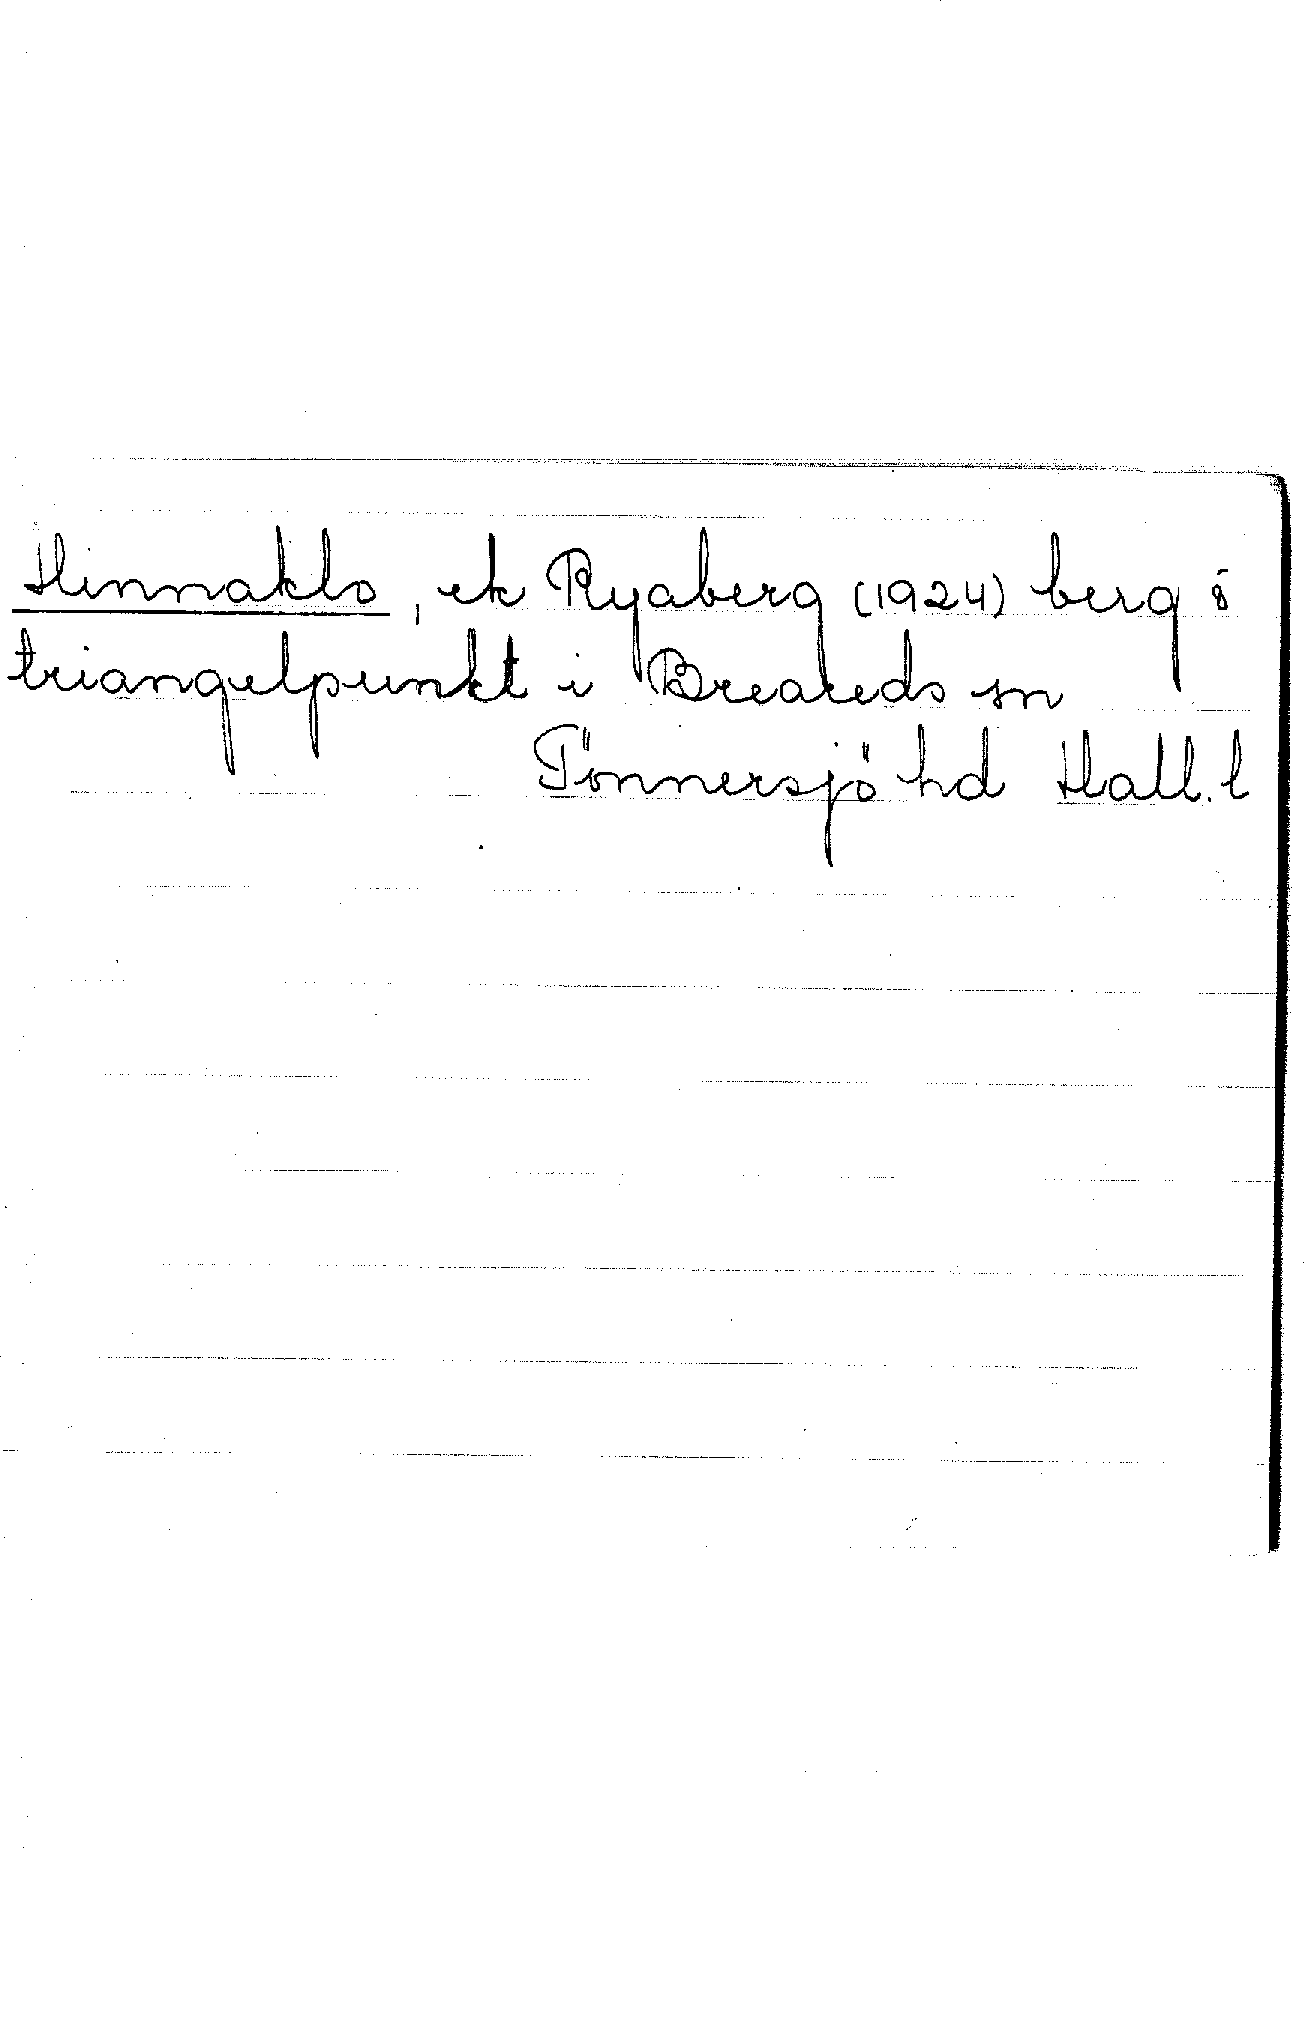 Hinnaklo, ek Ryaberg (1924) berg &
triangelpunkt i Breareds sn
Tönnersjö hd Hall. l